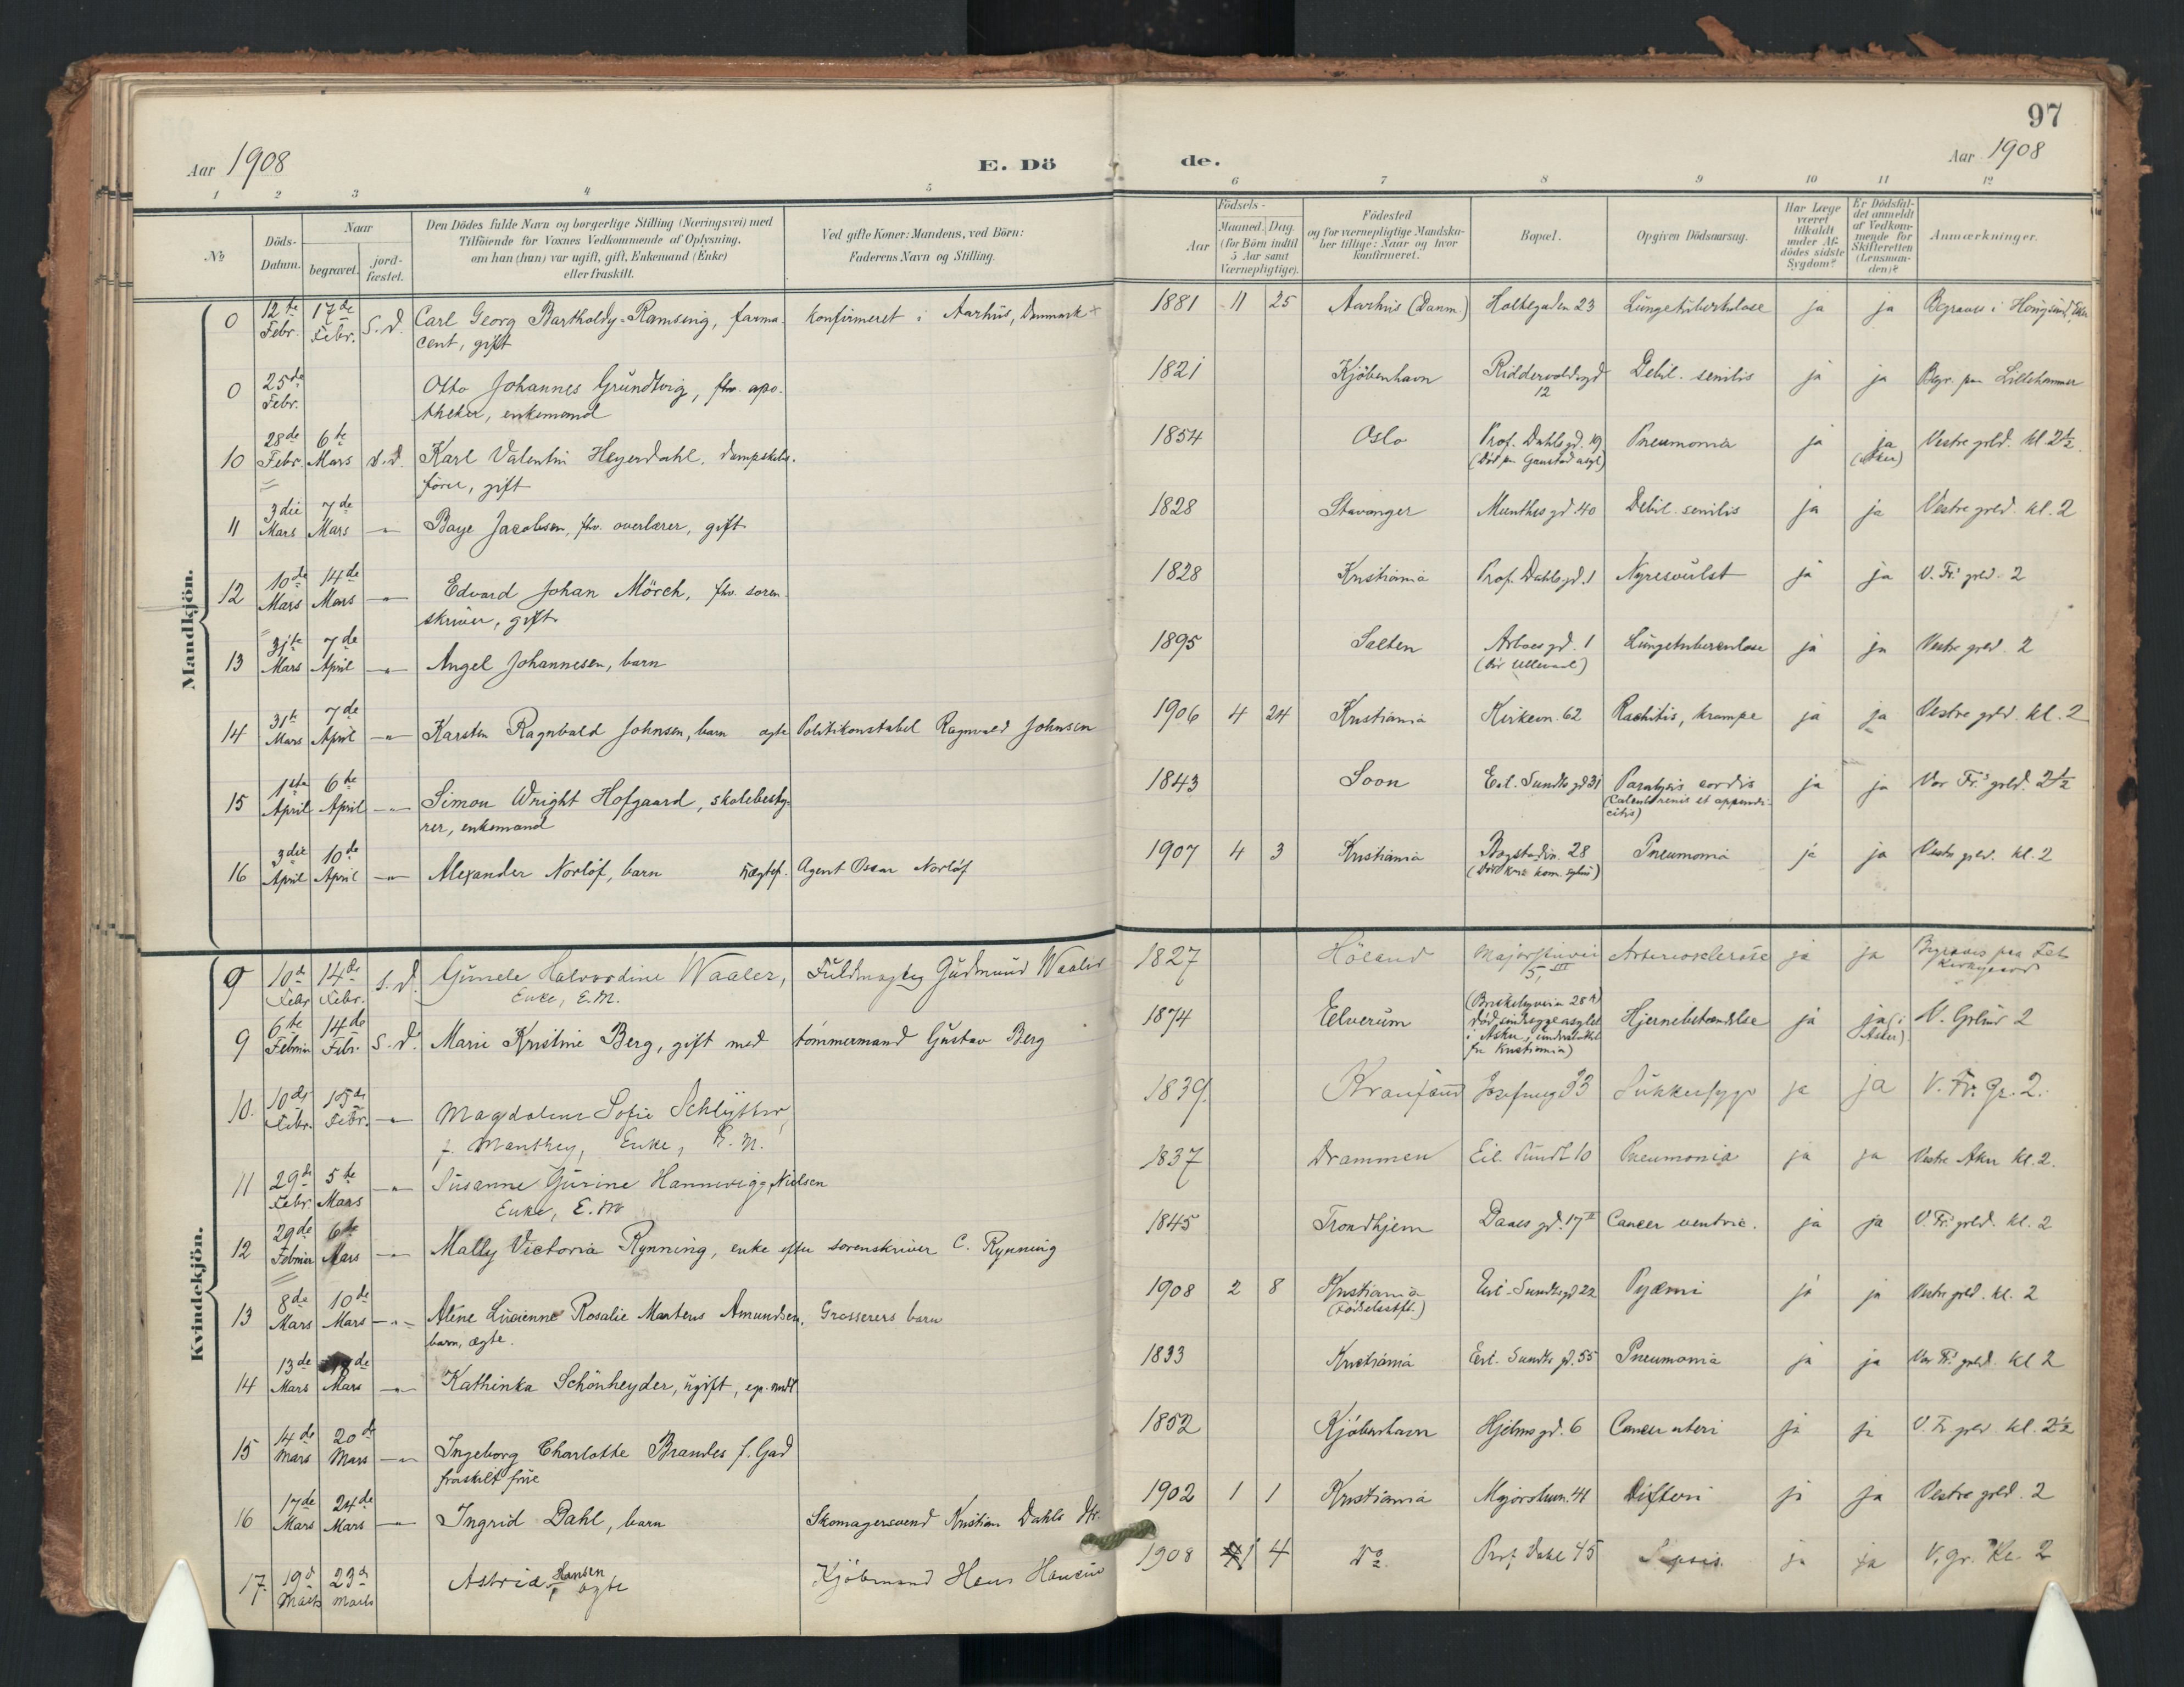 97
Aar 1908
E. Dö
de.
Aar 1908
1 2 3 4 5 6 7 8 9 10 11 12
No
Döds-Datum.
Naar
begravet.
jord-fæstet.
Den Dödes fulde Navn og borgerlige Stilling (Næringsvei) med
Tilföiende for Voxnes Vedkommende af Oplysning,
om han (hun) var ugift, gift, Enkemand (Enke)
eller fraskilt.
Ved gifte Koner: Mandens, ved Börn:
Faderens Navn og Stilling.
Födsels-
Aar
Maaned. Dag.
(for Börn indtil
5 Aar samt
Værnepligtige).
Födested
og for værnepligtige Mandska-
ber tillige: Naar og hvor
konfirmeret.
Bopæl.
Opgiven Dödsaarsag.
Har Læge
været
tilkaldt
under Af-
dödes sidste
Sygdom?
Er Dödsfal-
det anmeldt
af Vedkom-
mende for
Skifteretten
(Lensman-
den)?
Anmærkninger.
Mandkjön.
0 12te Febr. 17de Febr. S.d. Carl Georg Bartholdy-Ramsing, farma- konfirmeret i Aarhus, Danmark 1881 11 25 Aarhus (Danm.) Holtegaden 23 Lungetuberkulose ja ja Begraves i
cent, gift
0 25de Febr. Otto Johannes Grundtvig, fhv. apo- 1821 Kjöbenhavn Riddervoldsgd 12 Debil. senilis ja ja Begr. paa Lillehammer
theker, enkemand
10 28de Febr. 6te Mars s.d. Karl Valentin Heyerdahl, dampskibs- 1854 Oslo Prof. Dahlsgd. 19 Pneumonia ja ja Vestre grld. kl. 2½
förer, gift (död paa Gaustad asyl) (Aker)
11 3die Mars 7de Mars -"- Baye Jacobsen, fhv. overlærer, gift 1828 Stavanger Munthesgd. 40 Debil. senilis ja ja Vestre grld. kl. 2
12 10de Mars 14de Mars -"- Edvard Johan Mörch, fhv. soren- 1828 Kristiania Prof. Dahlsgd. 1 Nyresvulst ja ja V. Fr. grld. 2
skriver, gift
13 31te Mars 7de April -"- Angel Johannesen, barn 1895 Salten Arboesgd. 1 Lungetuberculose ja ja Vestre grld. 2
14 31te Mars 7de April -"- Karsten Ragnvald Johnsen, barn ægte Politikonstabel Ragnvald Johnsen 1906 4 24 Kristiania Kirkevn. 62 Rachitis, krampe ja ja Vestre grld. kl. 2
15 1ste April 6te April -"- Simon Wright Hofgaard, skolebesty- 1843 Soon Eil. Sundts gd 31 Paralysis cordis ja ja Vor Fr. grld. 2½
rer, enkemand
16 3die April 10de April -"- Alexander Norlöf, barn uægtef. Agent Oscar Norlöf 1907 4 3 Kristiania Bogstadvn. 28 Pneumonia ja ja Vestre grld. kl. 2
Kvindekjön.
9 10de Febr. 14de Febr. s.d. Gunele Halvordine Waaler, Fuldmægtig Gudmund Waaler 1827 Höland Majorstuvei 5, III Arteriosclerose ja ja Begraves paa Fet Kirkegaard
Enke, E.M.
9 6te Februar 14de Febr. S.d. Marie Kristine Berg, gift med tömmermand Gustav Berg 1874 Elverum død sindsygeasylet i Asker Hjernebetændelse ja ja (i Asker) V. Grlund 2
10. 10de Febr. 15de Febr. -"- Magdalene Sofie Schlytter, 1839. Josefinesg 33 Sukkersyge ja ja V. Fr. Gr. 2.
f. Manthey, Enke, E.M.
11 29de Febr. 5te Mars -"- Susanne Gurine Hannevigg Nielsen 1837 Drammen Eil. Sundt 10 Pneumonia ja ja Vestre Aker kl. 2.
Enke, E.M.
12 29de Februar 6te Mars -"- Mally Victoria Rynning, enke efter sorenskriver C. Rynning 1845 Trondhjem Daaes gd. 17 II Cancer ventric. ja ja V. Fr. grld. kl. 2
13 8de Mars 10de Mars -"- Aléne Lucienne Rosalie Martens Amundsen, Grosserers barn 1908 2 8 Kristiania (Födselsstft.) Eil. Sundtsgd 22 Pyæmi ja ja Vestre grld. kl. 2
barn, ægte.
14 13de Mars 18de Mars -"- Kathinka Schönheyder, ugift, eg. midl. 1833 Kristiania Eil. Sundts gd. 55 Pneumonia ja ja Vor Fr. grld. kl 2
15 14de Mars 20de Mars -"- Ingeborg Charlotte Brandes f. Gad 1852 Kjöbenhavn Hjelmsgd. 6 Cancer uteri ja ja V. Fr. grld. kl. 2½
fraskilt frue
16 17de Mars 24de Mars -"- Ingrid Dahl, barn Skomagersvend Kristian Dahls dtr. 1902 1 1 Kristiania Majorstuvn. 41 Difteri ja ja Vestre grld. 2
17. 19d Marts 23d Marts Astrid Hansen, ægte Kjöbmand Hans Hansen 1908 1 4 Do. Prof. Dahl 45 Sepsis ja ja V. gr. Kl. 2